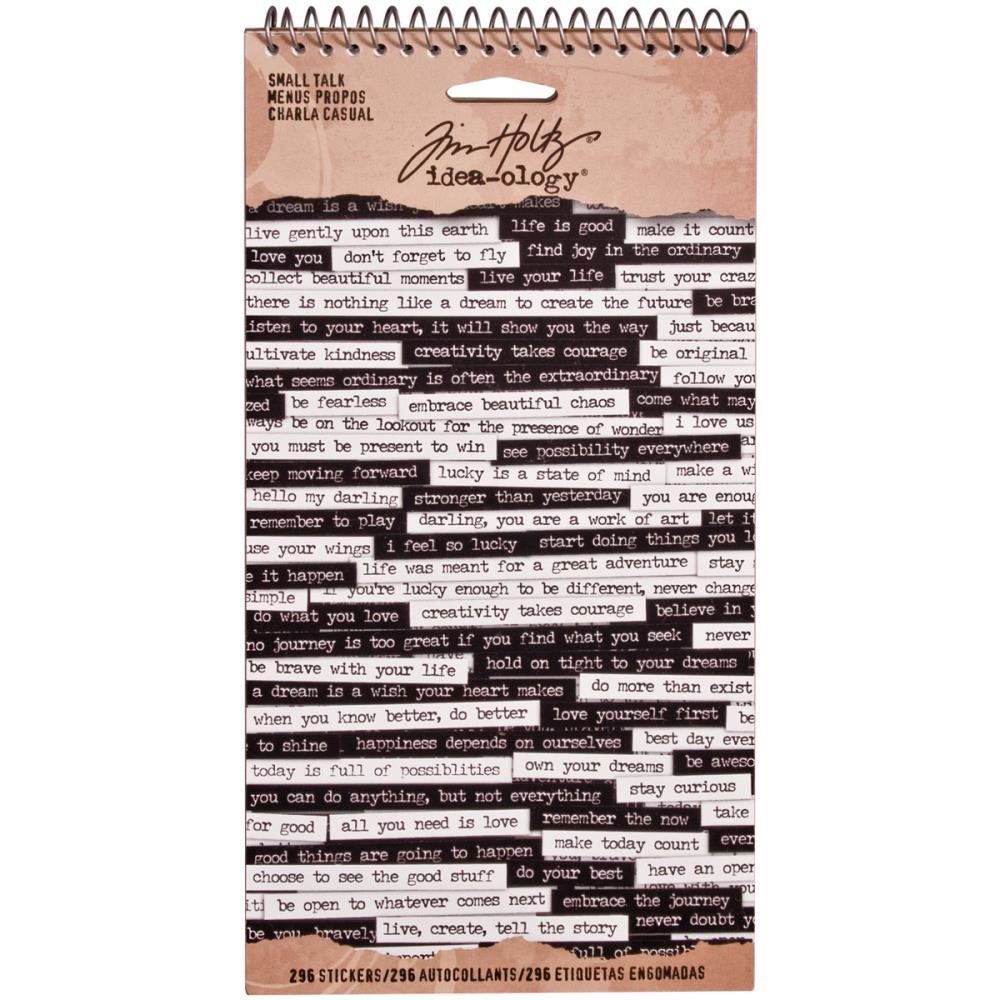 SMALL TALK
MENUS PROPOS
CHARLA CASUAL
Tim Holtz ®
idea-ology®
a dream is a wish heart makes
live gently upon this earth life is good make it count
love you don't forget to fly find joy in the ordinary
collect beautiful moments live your life trust your craz
there is nothing like a dream to create the future be bra
isten to your heart, it will show you the way just becau
ultivate kindness creativity takes courage be original
what seems ordinary is often the extraordinary follow you
zed be fearless embrace beautiful chaos come what may
ways be on the lookout for the presence of wonder i love us
you must be present to win see possibility everywhere
keep moving forward lucky is a state of mind make a wi
hello my darling stronger than yesterday you are enoug
remember to play darling, you are a work of art let it
use your wings i feel so lucky start doing things you lo
e it happen life was meant for a great adventure stay
simple if you're lucky enough to be different, never change
do what you love creativity takes courage believe in y
no journey is too great if you find what you seek never
be brave with your life hold on tight to your dreams
a dream is a wish your heart makes do more than exist
when you know better, do better love yourself first be
to shine happiness depends on ourselves best day ever
today is full of possiblities own your dreams be aweso
you can do anything, but not everything stay curious
for good all you need is love remember the now take
good things are going to happen make today count ever
choose to see the good stuff do your best have an open
iti be open to whatever comes next embrace the journey
be you, bravely live, create, tell the story never doubt yo
full of possib
296 STICKERS/296 AUTOCOLLANTS/296 ETIQUETAS ENGOMADAS